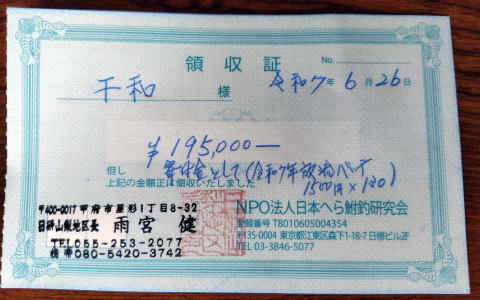 領収証 No.
千和 様 令和7年 6月 26日
¥195,000―
但し 寄付金として(令和7年放流バッヂ
1500円×130)
上記の金額正に領収いたしました
〒400-0017 甲府市屋形1丁目8-32
日研山梨地区長 雨宮 健
TEL055-253-2077
携帯080-5420-3742
NPO法人日本へら鮒釣研究会
登録番号 T8010605004354
〒135-0004 東京都江東区森下1-18-7 日修ビル2F
TEL 03-3846-5077